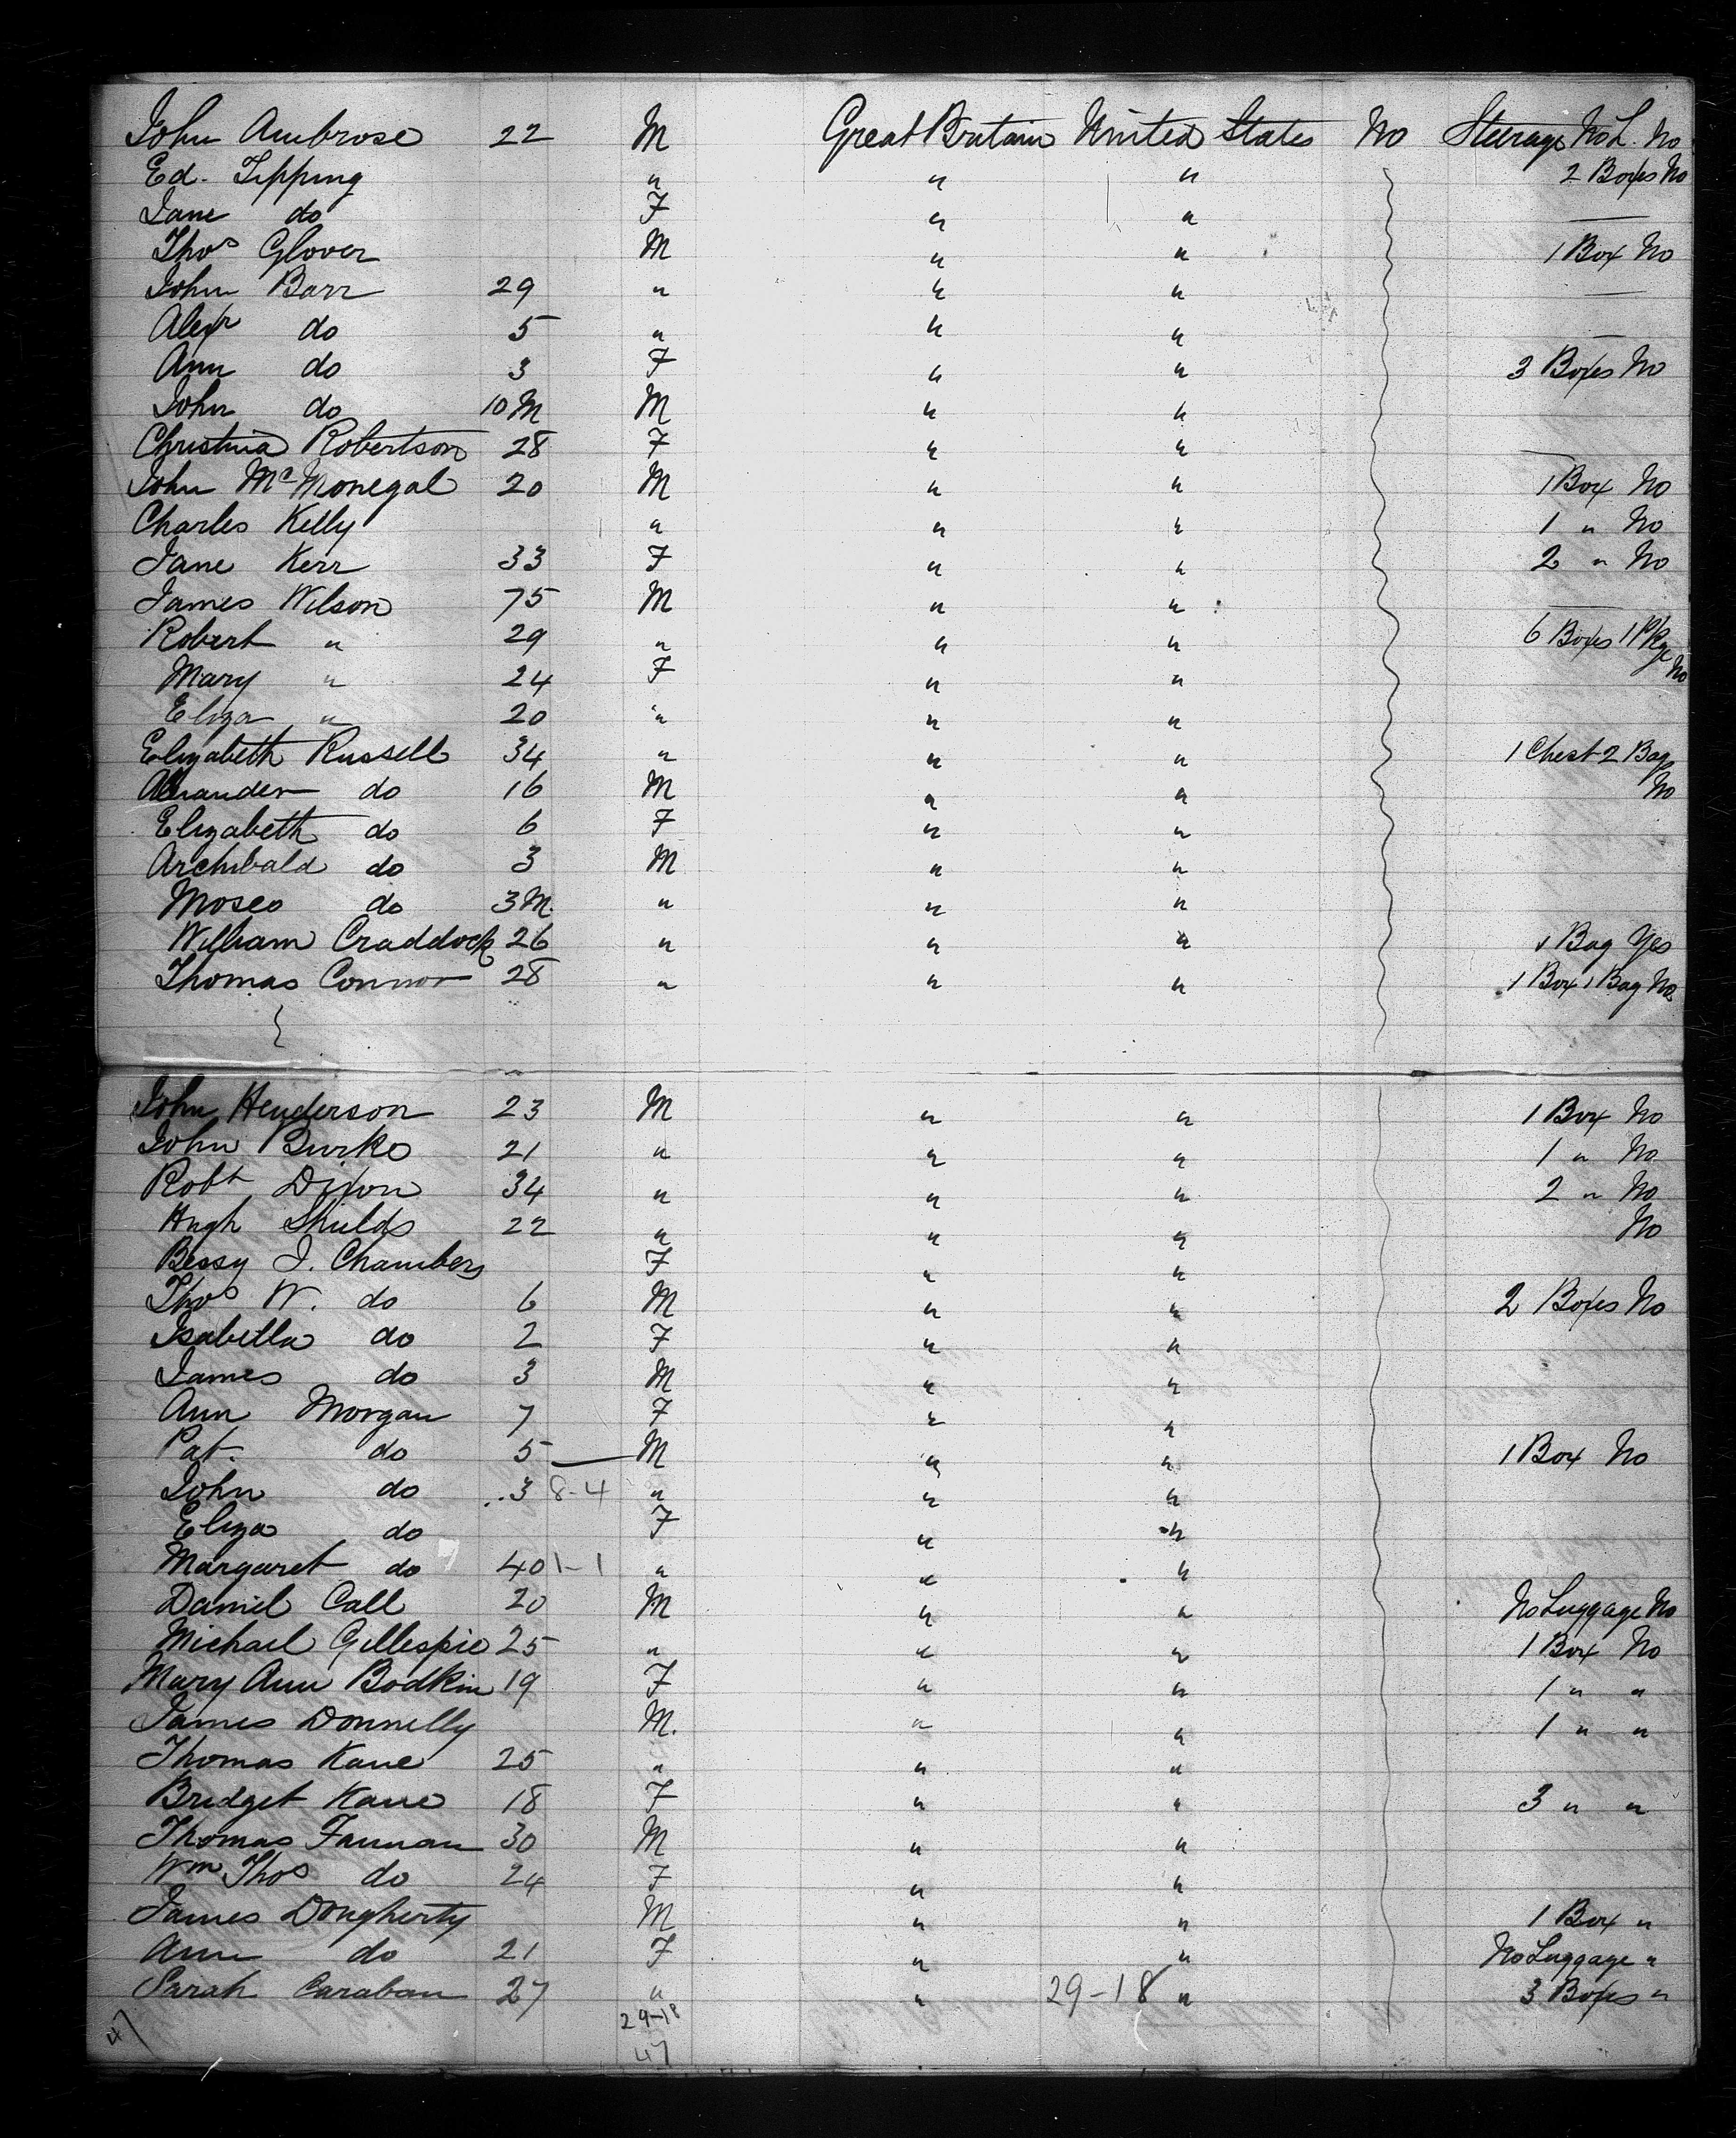 John Ambrose 22 M Great Britain United States No Steerage No L. No
Ed. Tipping " " " 2 Boxes No
Jane do F " "
Thos Glover M " " 1 Box No
John Barr 29 " " "
Alexr do 5 " " "
Ann do 3 F " " 3 Boxes No
John do 10 M M " "
Christina Robertson 28 F " "
John McMonegal 20 M " " 1 Box No
Charles Kelly " " " 1 " No
Jane Kerr 33 F " " 2 " No
James Wilson 75 M " "
Robert " 29 " " " 6 Boxes 1 Pkge
Mary " 24 F " " No
Eliza " 20 " " "
Elizabeth Russell 34 " " " 1 Chest 2 Bag
do 16 M " " No
Elizabeth do 6 F " "
Archibald do 3 M " "
Moses do 3 M. " " "
William Craddock 26 " " " 1 Bag Yes
Thomas Connor 28 " " " 1 Box 1 Bag No
John Henderson 23 M " " 1 Box No
John Burke 21 " " " 1 " No
Robt Dixon 34 " " " 2 " No
Hugh Shields 22 " " " No
Bessy J. Chambers F " "
Thos W. do 6 M " " 2 Boxes No
Isabella do 2 F " "
James do 3 M " "
Ann Morgan 7 F " "
Pat. do 5 M " " 1 Box No
John do 3 8-4 " " "
Eliza do F " "
Margaret do 40 1-1 " " "
Daniel Call 20 M " " No Luggage No
Michael Gillespie 25 " " " 1 Box No
Mary Ann Bodkin 19 F " " 1 " "
James Donnelly M. " " 1 " "
Thomas Kane 25 " " "
Bridget Kane 18 F " " 3 " "
Thomas Fannan 30 M " "
Wm Thos do 24 F " "
James Dougherty M " " 1 Box "
Ann do 21 F " " No Luggage "
Sarah Caraban 27 " " 29-18 " 3 Boxes "
29-18
47 47